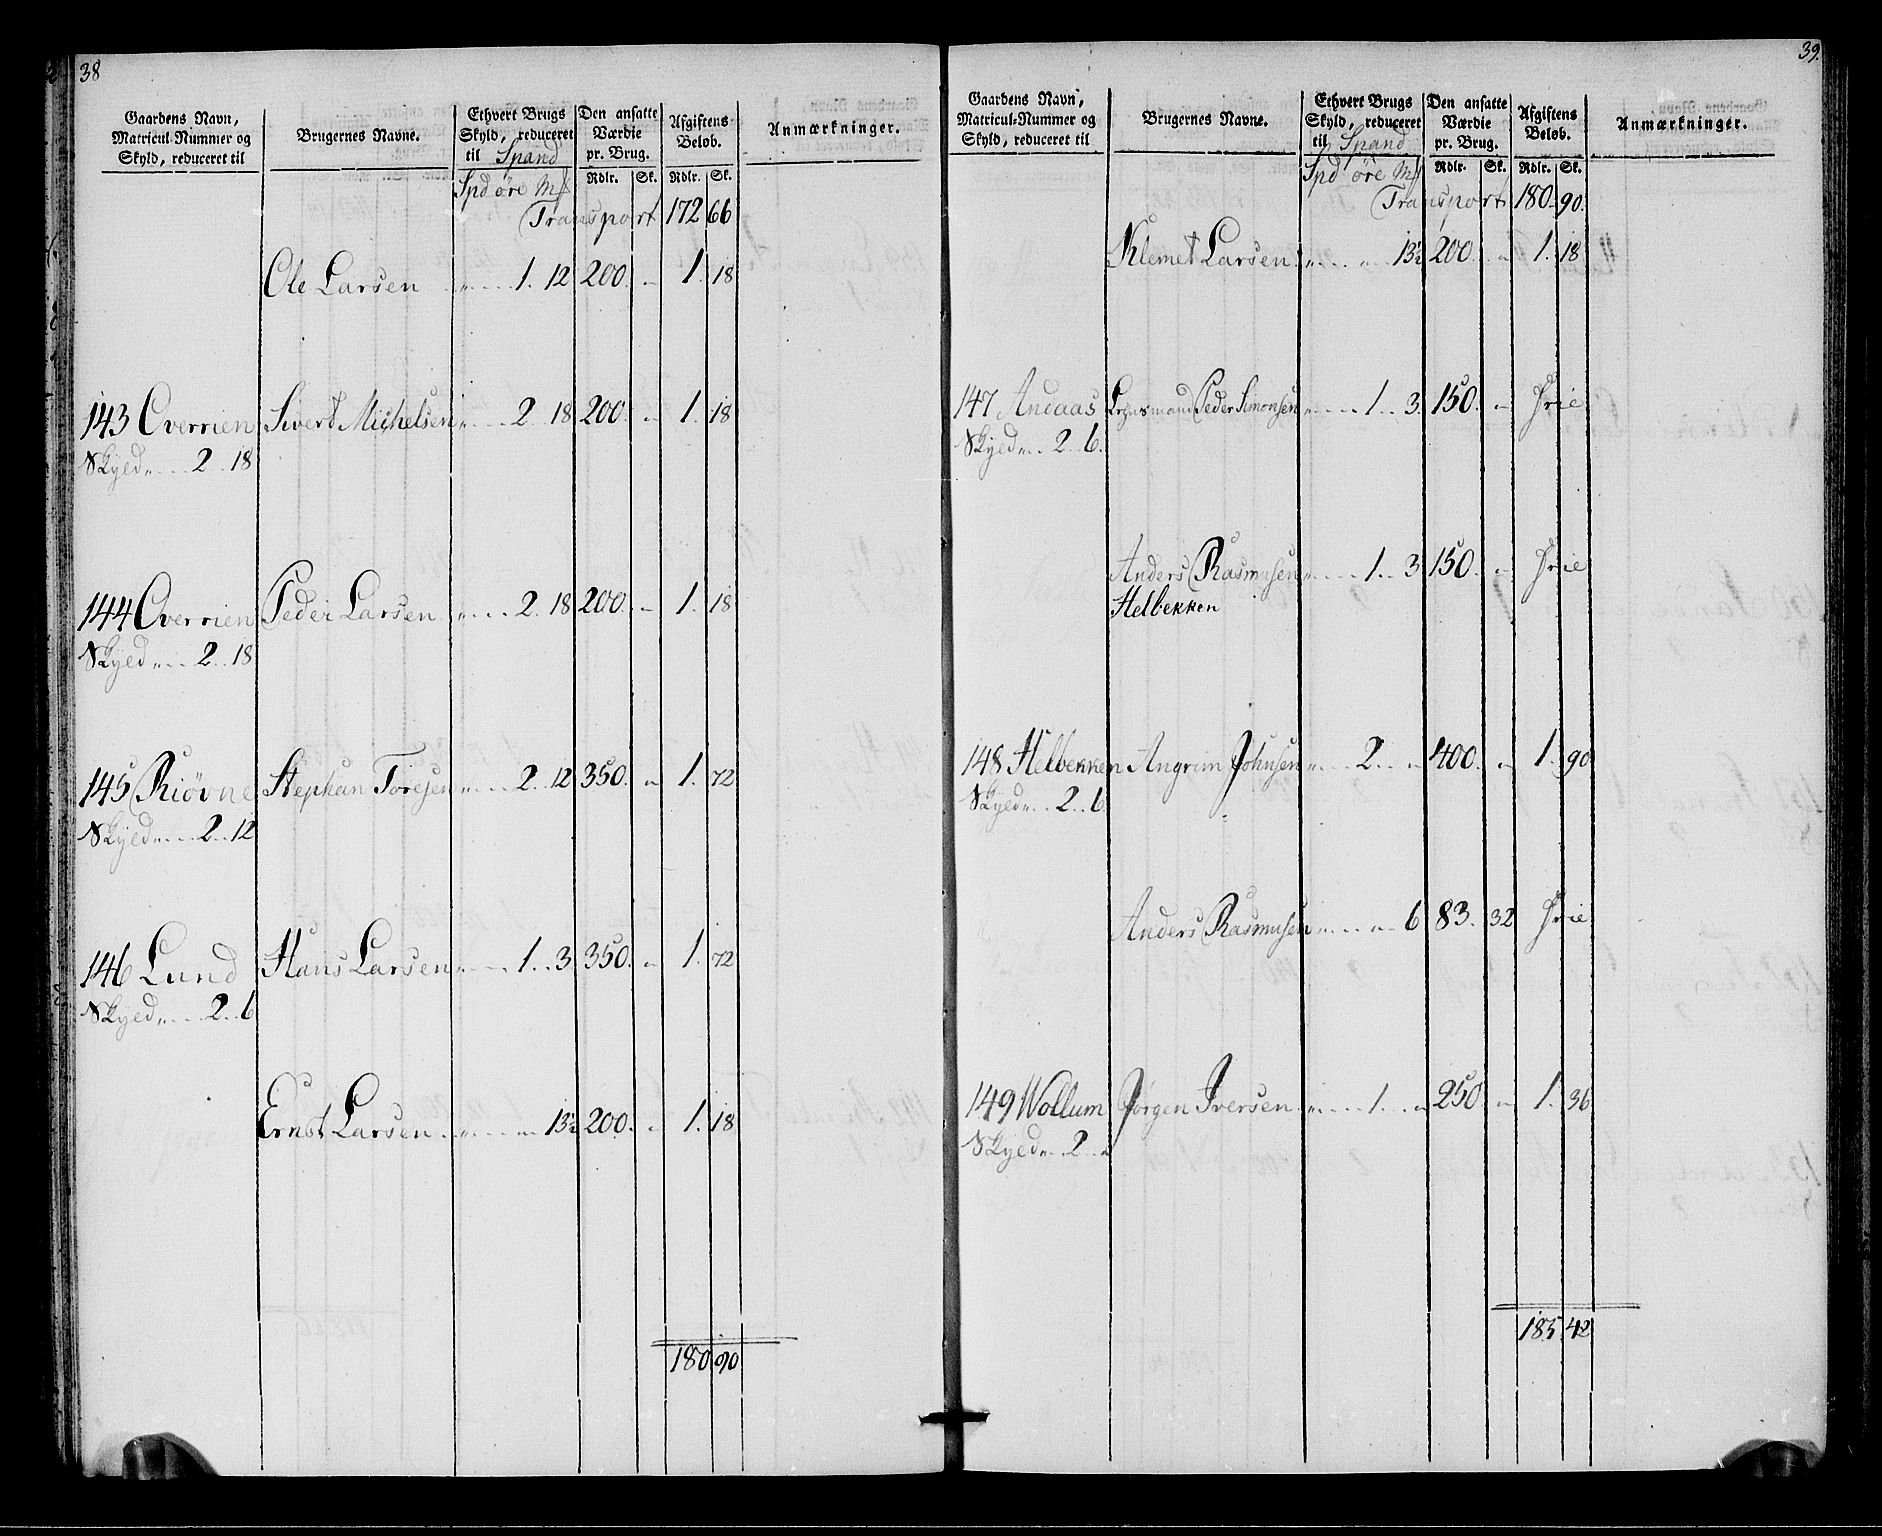 38
Gaardens Navn, Matricul-Nummer og Skyld, reduceret til | Brugernes Navne. | Ethvert Brugs Skyld, reduceret til Spand | Den ansatte Værdie pr. Brug. | Afgiftens Beløb. | Anmærkninger.
Spd øre Mk | Rdlr. | Sk. | Rdlr. | Sk.
Transport 172 66
Ole Larsen „ 1. 12 200. „ 1. 18
143 Overrien Sivert Michelsen „ 2 18 200 „ 1. 18
Skyld „ 2 18
144 Overrien Peder Larsen „ 2. 18 200. „ 1. 18
Skyld „ 2 18
145 Riøvne Stephan Toresen „ 2. 12 350. „ 1. 72
Skyld „ 2 12
146 Lund Hans Larsen „ 1. 3. 350. „ 1. 72
Skyld „ 2 6
Ernst Larsen „ „ 13½ 200. „ 1. 18
180 90
39.
Gaardens Navn, Matricul-Nummer og Skyld, reduceret til | Brugernes Navne. | Ethvert Brugs Skyld, reduceret til Spand | Den ansatte Værdie pr. Brug. | Afgiftens Beløb. | Anmærkninger.
Spd øre Mk | Rdlr. | Sk. | Rdlr. | Sk.
Transport 180 90.
Klemet Larsen „ „ 13½ 200 „ 1. 18
147 Andaas Lensmand Peder Simonsen „ 1 3. 150. „ Frie
Skyld „ 2 6.
Anders Rasmusen „ 1 3 150. „ Frie
Helbekken
148 Helbekken Angrim Johnsen „ 2 „ 400. „ 1. 90
Skyld „ 2 6
Anders Rasmusen „ „ 6 83. 32 Frie
149 Wollum Jørgen Iversen „ 1 „ 250 „ 1. 36
Skyld „ 2 „
185 42